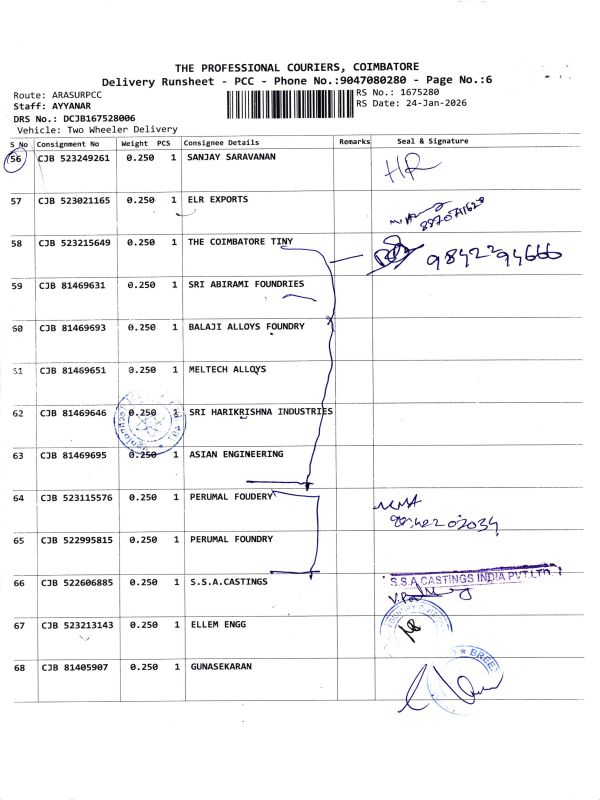 THE PROFESSIONAL COURIERS, COIMBATORE
Delivery Runsheet - PCC - Phone No.:9047080280 - Page No.:6
Route: ARASURPCC RS No.: 1675280
Staff: AYYANAR RS Date: 24-Jan-2026
DRS No.: DCJB167528006
Vehicle: Two Wheeler Delivery
S No Consignment No Weight PCS Consignee Details Remarks Seal & Signature
56 CJB 523249261 0.250 1 SANJAY SARAVANAN
57 CJB 523021165 0.250 1 ELR EXPORTS
58 CJB 523215649 0.250 1 THE COIMBATORE TINY 9842294666
59 CJB 81469631 0.250 1 SRI ABIRAMI FOUNDRIES
60 CJB 81469693 0.250 1 BALAJI ALLOYS FOUNDRY
61 CJB 81469651 0.250 1 MELTECH ALLOYS
62 CJB 81469646 0.250 1 SRI HARIKRISHNA INDUSTRIES
63 CJB 81469695 0.250 1 ASIAN ENGINEERING
64 CJB 523115576 0.250 1 PERUMAL FOUDERY
65 CJB 522995815 1 PERUMAL FOUNDRY
0.250
66 CJB 522606885 0.250 1 S.S.A.CASTINGS S.S.A CASTINGS INDIA PVT.LTD.
67 CJB 523213143 0.250 1 ELLEM ENGG
68 CJB 81405907 0.250 1 GUNASEKARAN